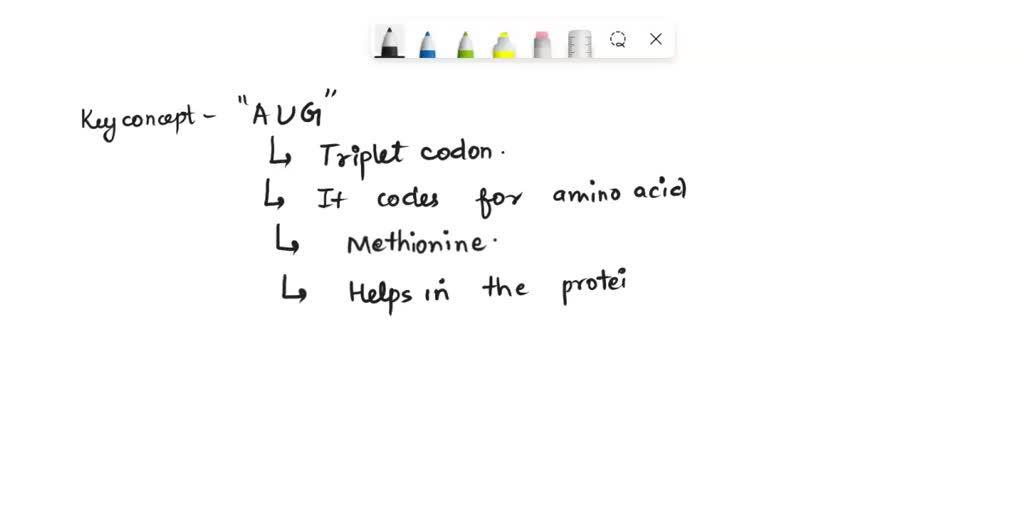 Key concept - "AUG"
↳ Triplet codon.
↳ It codes for amino acid
↳ Methionine.
↳ Helps in the protei